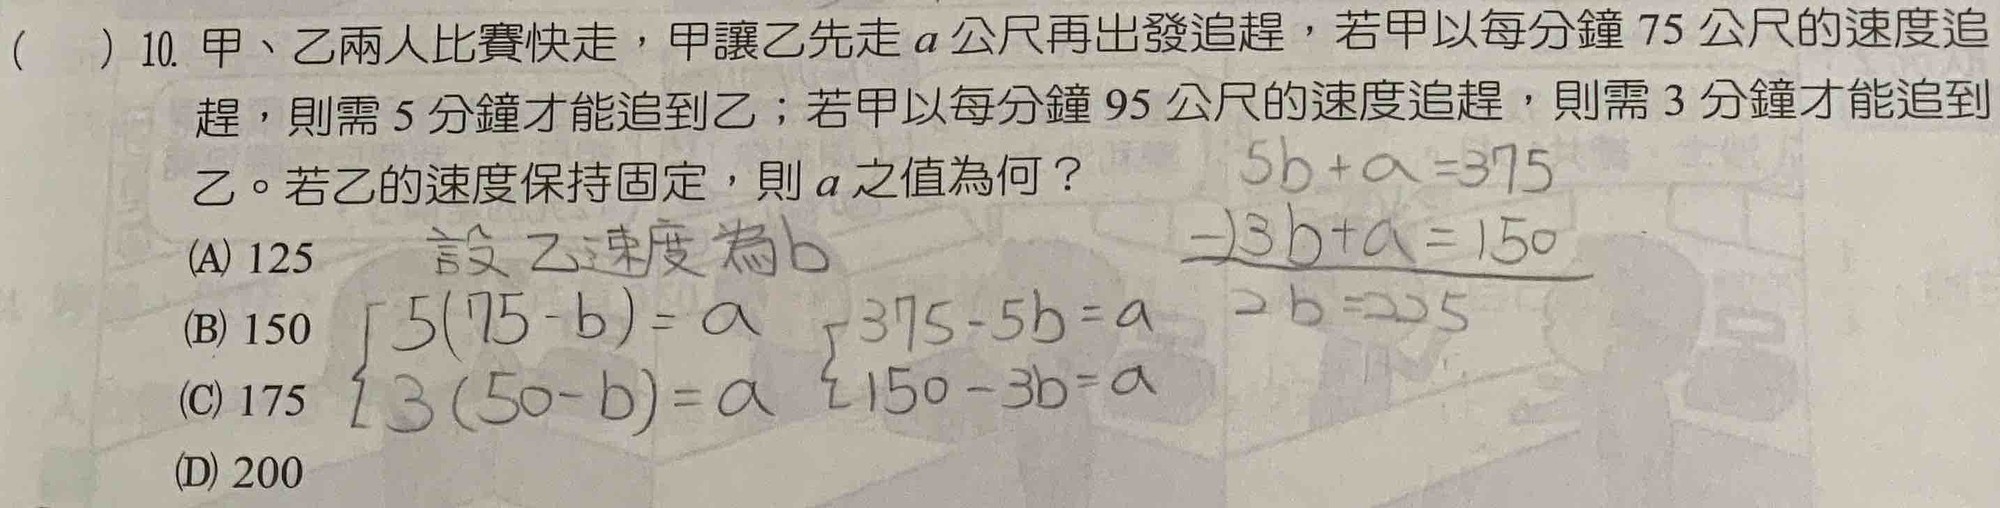 ( ) 10. 甲、乙兩人比賽快走，甲讓乙先走 a 公尺再出發追趕，若甲以每分鐘 75 公尺的速度追
趕，則需 5 分鐘才能追到乙；若甲以每分鐘 95 公尺的速度追趕，則需 3 分鐘才能追到
乙。若乙的速度保持固定，則 a 之值為何？
5b+a=375
(A) 125
設乙速度為b
-)3b+a=150
(B) 150
5(75-b)=a
375-5b=a
2b=225
(C) 175
3(50-b)=a
150-3b=a
(D) 200